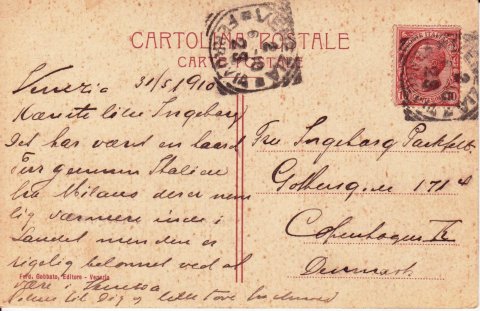 CARTOLINA POSTALE
CARTE POSTALE
Venezia 31/5 1910
Kæreste lille Ingeborg
Det har været en haard
Tur gennem Italien
fra Milano der er nem
lig varmere inde i
Landet men den er
rigelig belønnet ved at
være i Venezia
Hilsen til Dig og
Fru Ingeborg
Gothersgade 171
Copenhagen K
Denmark
Ferd. Gobbato, Editore - Venezia